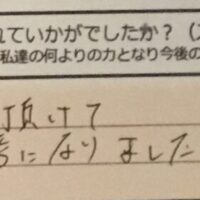 れていかがでしたか？（
私達の何よりの力となり今後の
頂けて
になりました